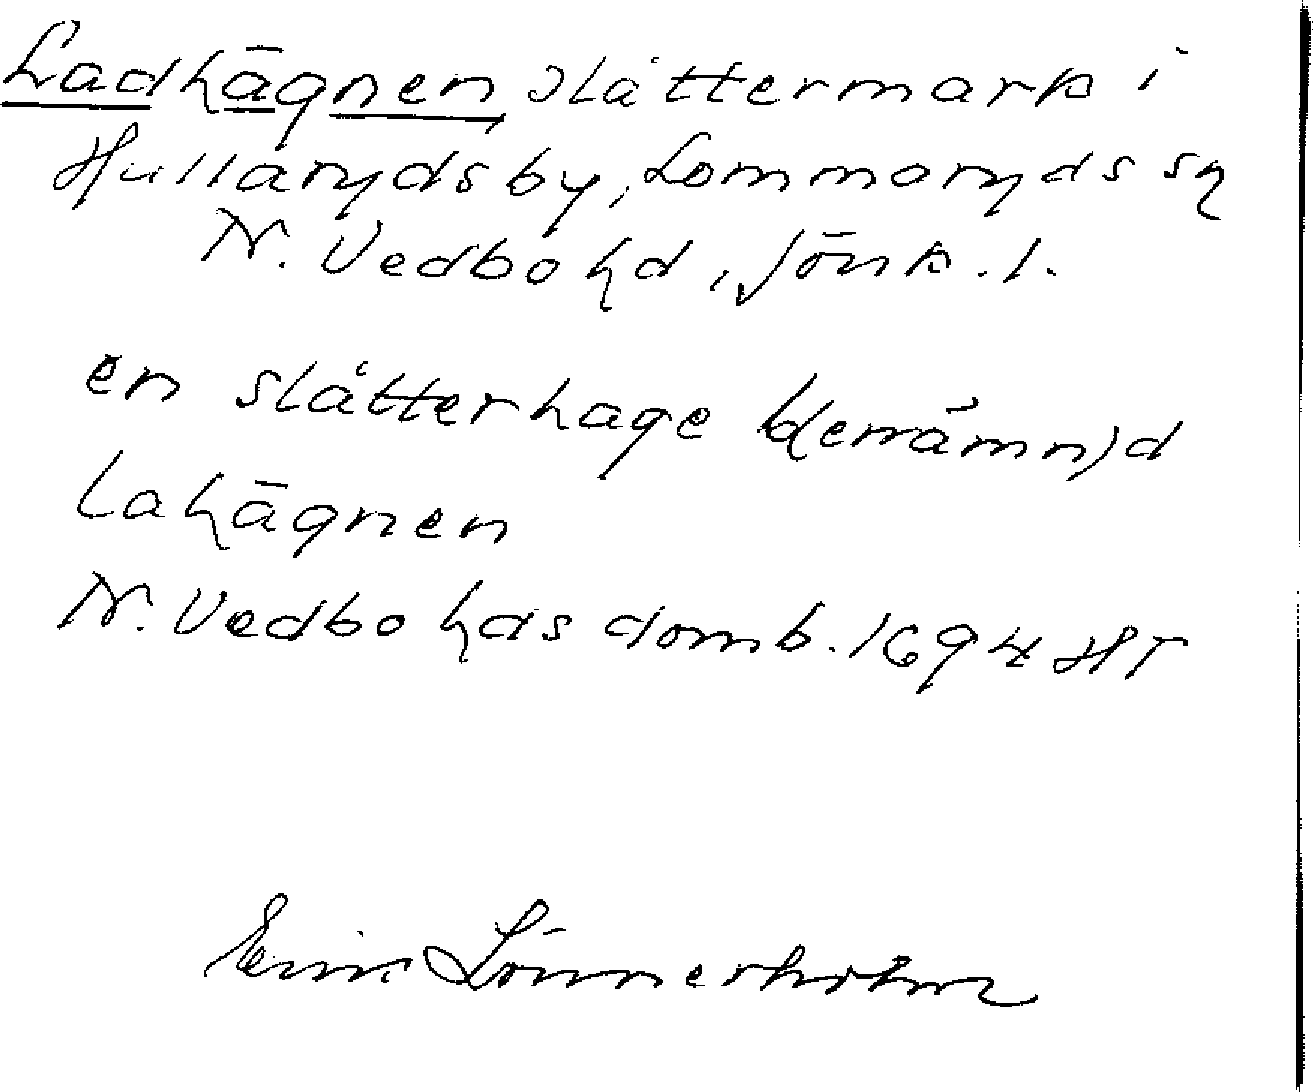 Ladhägnen slåttermark i
Hullaryds by, Lommaryds sn
N. Vedbo hd, Jönk. l.
en slåtterhage b(enämn)d
Lahägnen
N. Vedbo hds domb. 1694 HT
Einar Lönnerholm